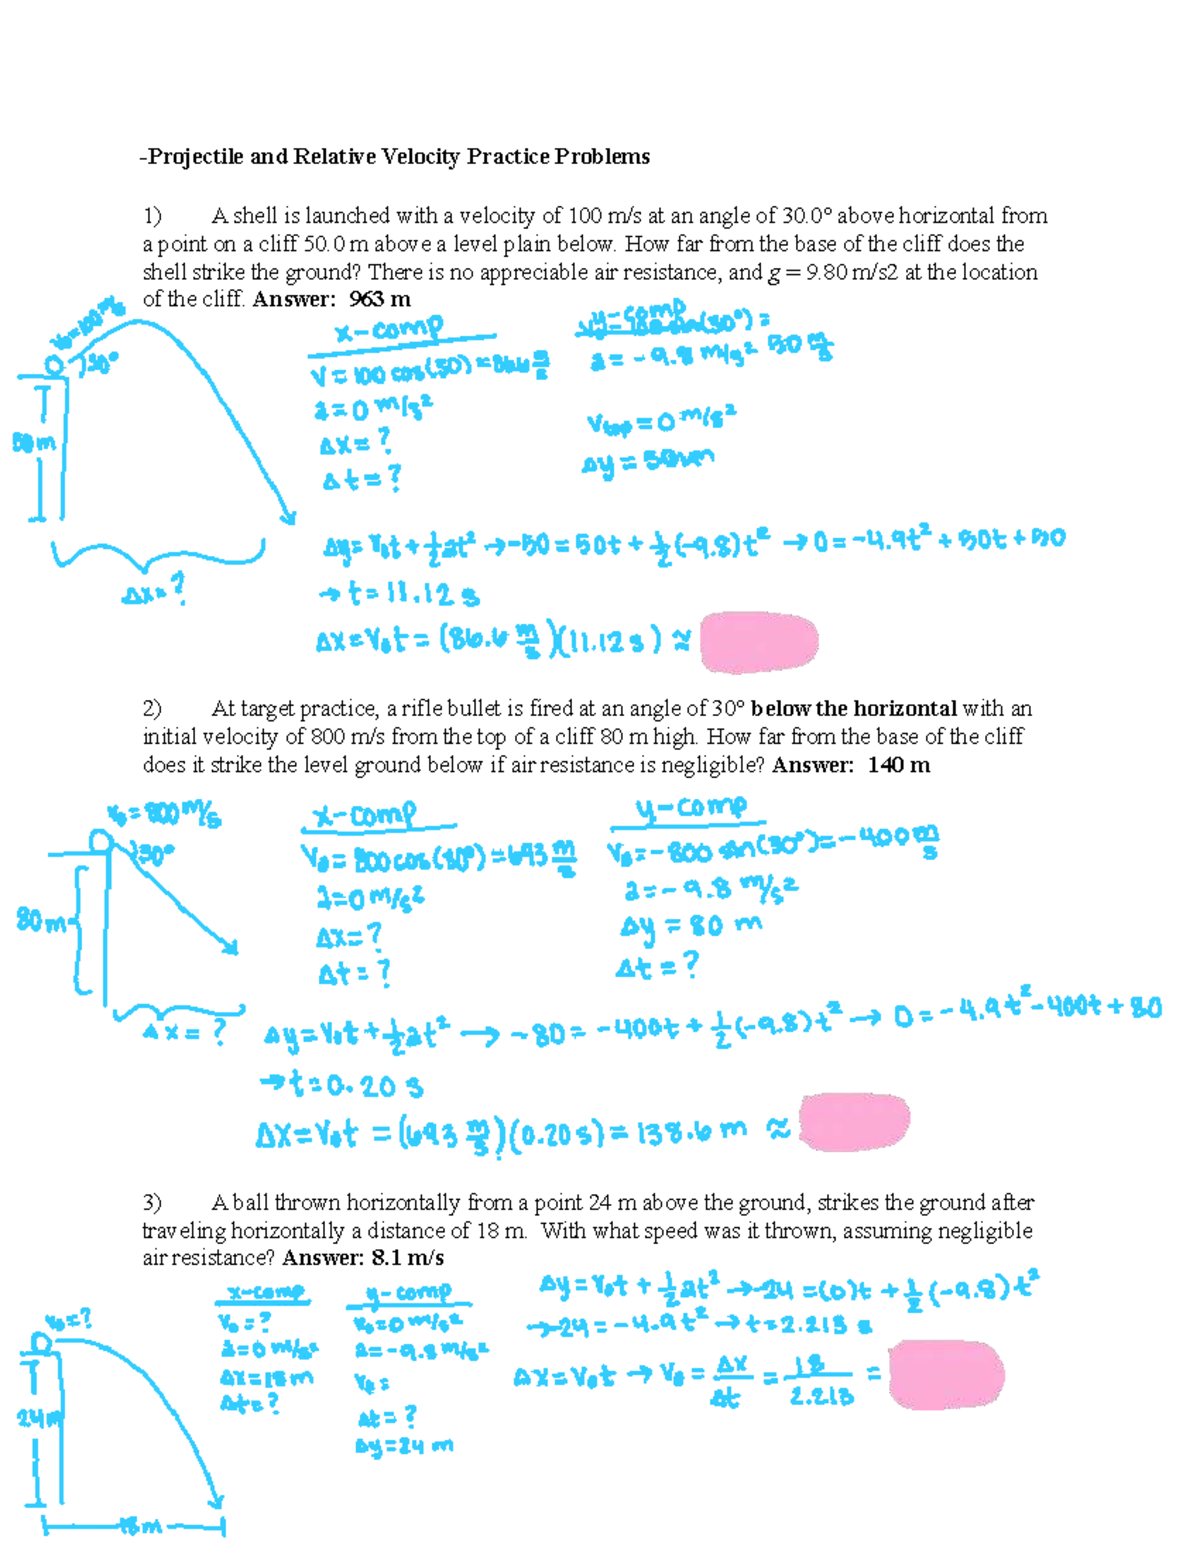 -Projectile and Relative Velocity Practice Problems
1) A shell is launched with a velocity of 100 m/s at an angle of 30.0° above horizontal from
a point on a cliff 50.0 m above a level plain below. How far from the base of the cliff does the
shell strike the ground? There is no appreciable air resistance, and g = 9.80 m/s2 at the location
of the cliff. Answer: 963 m
v₀=100 m/s
30°
50 m
Δx=?
x-comp
v=100 cos(30)=86.6 m/s
a=0 m/s²
Δx=?
Δt=?
y-comp
a=-9.8 m/s² 50 m/s
Vtop=0 m/s²
Δy=50m
Δy=V₀t+½at²→-50=50t+½(-9.8)t²→0=-4.9t²+50t+50
→t=11.12 s
Δx=V₀t=(86.6 m/s)(11.12s)≈
2) At target practice, a rifle bullet is fired at an angle of 30° below the horizontal with an
initial velocity of 800 m/s from the top of a cliff 80 m high. How far from the base of the cliff
does it strike the level ground below if air resistance is negligible? Answer: 140 m
v₀=800 m/s
30°
80 m
Δx=?
x-comp
V₀=800cos(30°)=693 m/s
a=0 m/s²
Δx=?
Δt=?
y-comp
V₀=-800 sin(30°)=-400 m/s
a=-9.8 m/s²
Δy=80 m
Δt=?
Δy=V₀t+½at²→-80=-400t+½(-9.8)t²→0=-4.9t²-400t+80
→t=0.20 s
Δx=V₀t=(693 m/s)(0.20s)=138.6 m≈
3) A ball thrown horizontally from a point 24 m above the ground, strikes the ground after
traveling horizontally a distance of 18 m. With what speed was it thrown, assuming negligible
air resistance? Answer: 8.1 m/s
v₀=?
24m
18m
x-comp
V₀=?
a=0 m/s²
Δx=18m
Δt=?
y-comp
V₀=0 m/s²
a=-9.8 m/s²
Δt=?
Δy=24 m
Δy=V₀t+½at²→-24=(0)t+½(-9.8)t²
→-24=-4.9t²→t=2.213 s
Δx=V₀t→V₀=Δx/Δt=18/2.213=